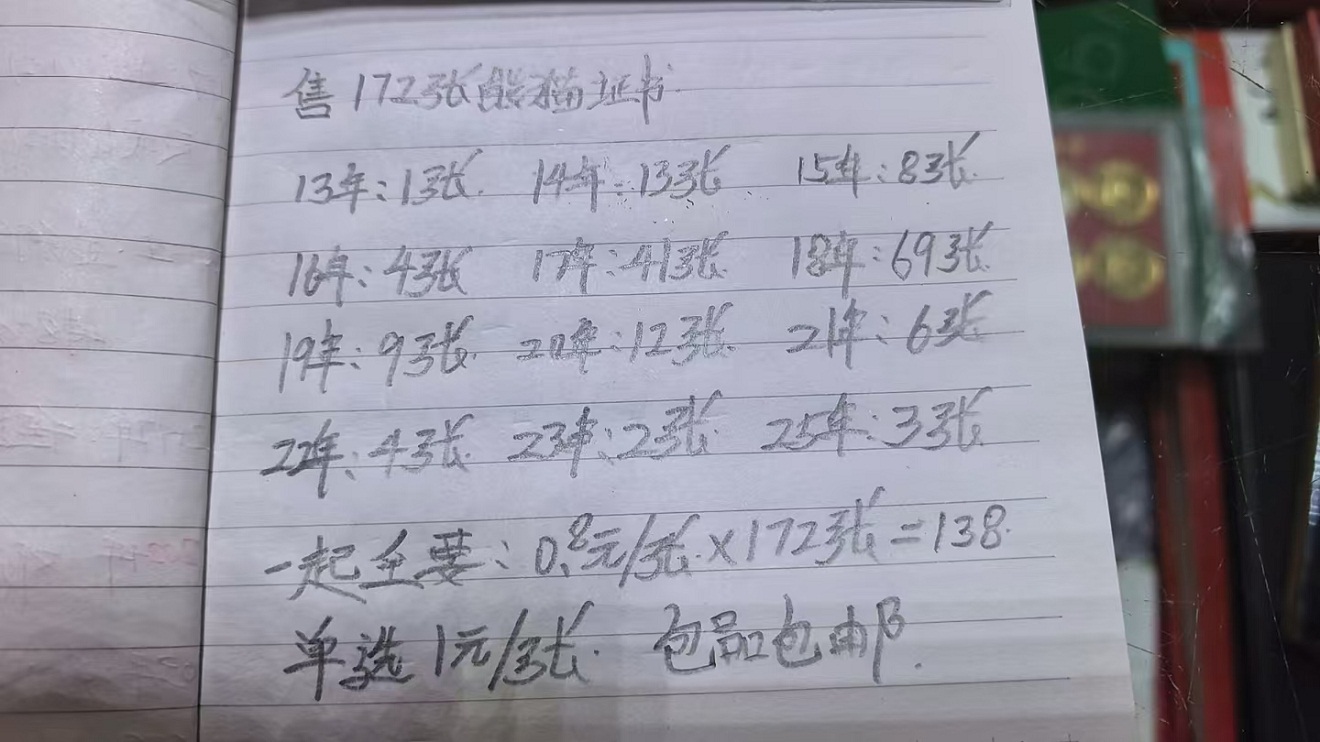 售172张熊猫证书.
13年:1张. 14年:13张 15年:8张.
16年:4张 17年:41张. 18年:69张.
19年:9张. 20年:12张. 21年:6张
22年:4张. 23年:2张. 25年:3张
一起全要:0.8元/张.×172张=138.
单选1元/张. 包品包邮.